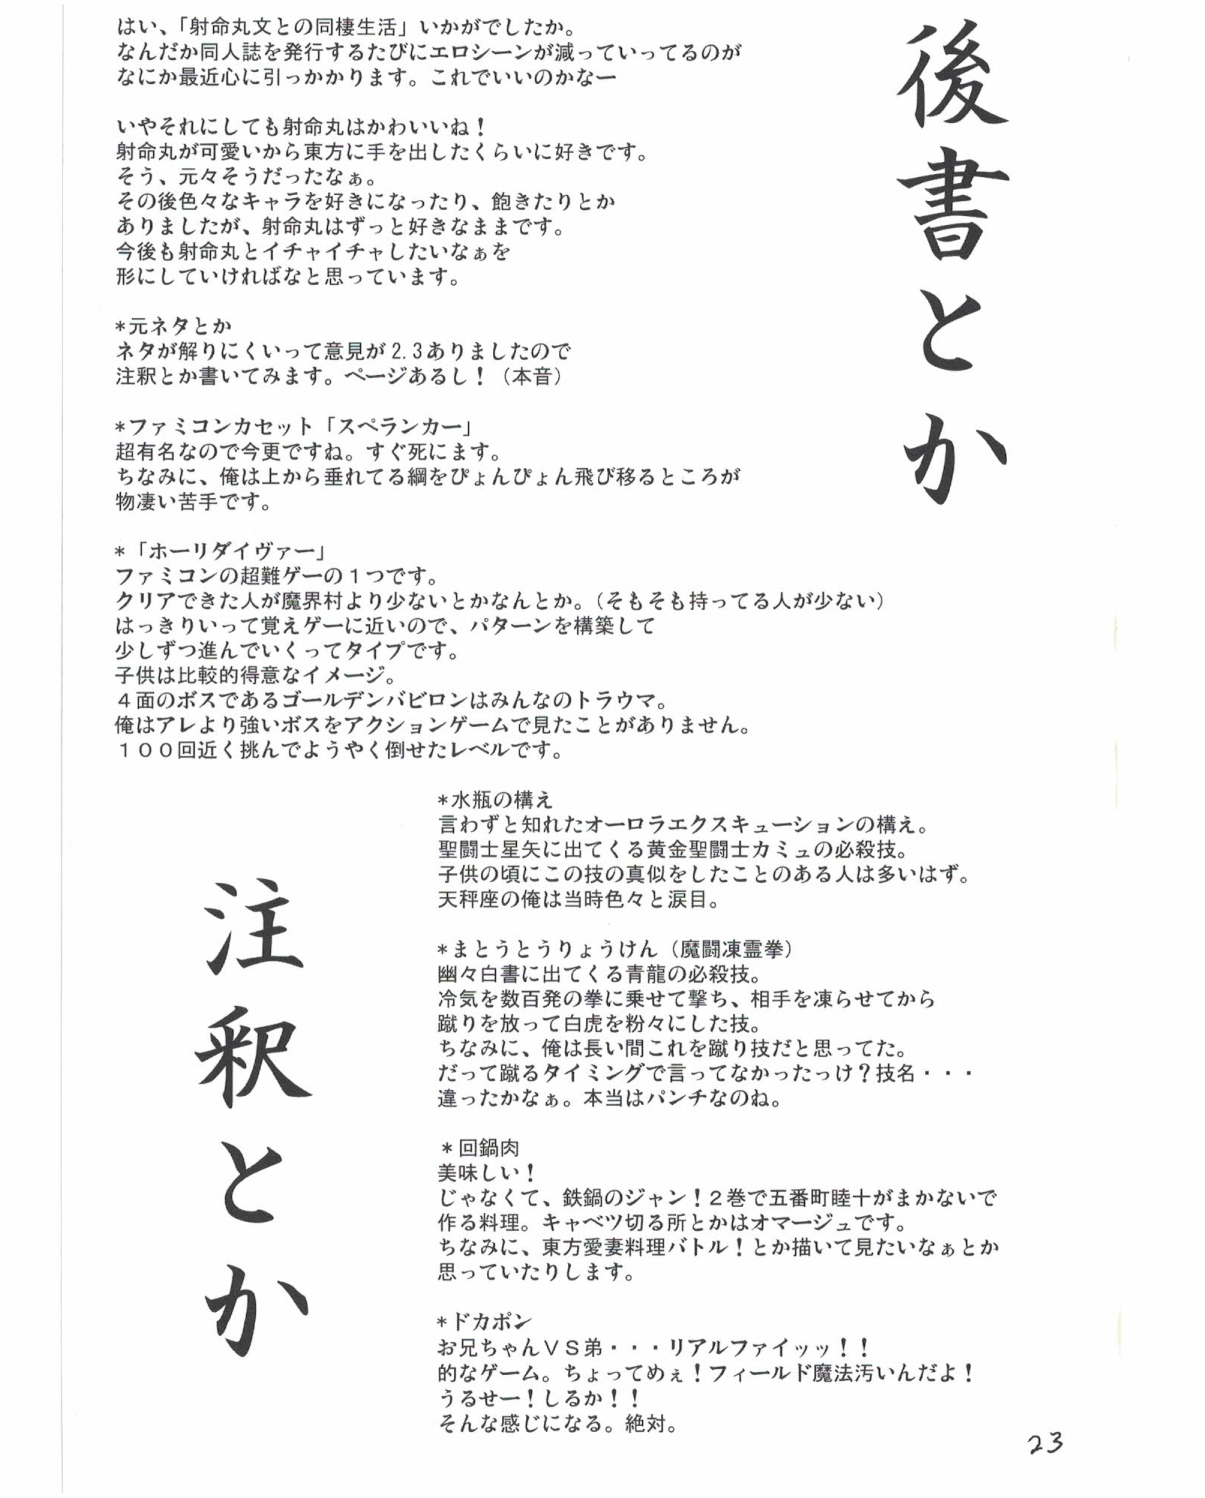 後書とか
はい、「射命丸文との同棲生活」いかがでしたか。
なんだか同人誌を発行するたびにエロシーンが減っていってるのが
なにか最近心に引っかかります。これでいいのかなー
いやそれにしても射命丸はかわいいね！
射命丸が可愛いから東方に手を出したくらいに好きです。
そう、元々そうだったなぁ。
その後色々なキャラを好きになったり、飽きたりとか
ありましたが、射命丸はずっと好きなままです。
今後も射命丸とイチャイチャしたいなぁを
形にしていければなと思っています。
*元ネタとか
ネタが解りにくいって意見が2.3ありましたので
注釈とか書いてみます。ページあるし！（本音）
*ファミコンカセット「スペランカー」
超有名なので今更ですね。すぐ死にます。
ちなみに、俺は上から垂れてる綱をぴょんぴょん飛び移るところが
物凄い苦手です。
*「ホーリダイヴァー」
ファミコンの超難ゲーの１つです。
クリアできた人が魔界村より少ないとかなんとか。（そもそも持ってる人が少ない）
はっきりいって覚えゲーに近いので、パターンを構築して
少しずつ進んでいくってタイプです。
子供は比較的得意なイメージ。
４面のボスであるゴールデンバビロンはみんなのトラウマ。
俺はアレより強いボスをアクションゲームで見たことがありません。
１００回近く挑んでようやく倒せたレベルです。
注釈とか
*水瓶の構え
言わずと知れたオーロラエクスキューションの構え。
聖闘士星矢に出てくる黄金聖闘士カミュの必殺技。
子供の頃にこの技の真似をしたことのある人は多いはず。
天秤座の俺は当時色々と涙目。
*まとうとうりょうけん（魔闘凍霊拳）
幽々白書に出てくる青龍の必殺技。
冷気を数百発の拳に乗せて撃ち、相手を凍らせてから
蹴りを放って白虎を粉々にした技。
ちなみに、俺は長い間これを蹴り技だと思ってた。
だって蹴るタイミングで言ってなかったっけ？技名・・・
違ったかなぁ。本当はパンチなのね。
*回鍋肉
美味しい！
じゃなくて、鉄鍋のジャン！２巻で五番町睦十がまかないで
作る料理。キャベツ切る所とかはオマージュです。
ちなみに、東方愛妻料理バトル！とか描いて見たいなぁとか
思っていたりします。
*ドカポン
お兄ちゃんＶＳ弟・・・リアルファイッッ！！
的なゲーム。ちょってめぇ！フィールド魔法汚いんだよ！
うるせー！しるか！！
そんな感じになる。絶対。
23